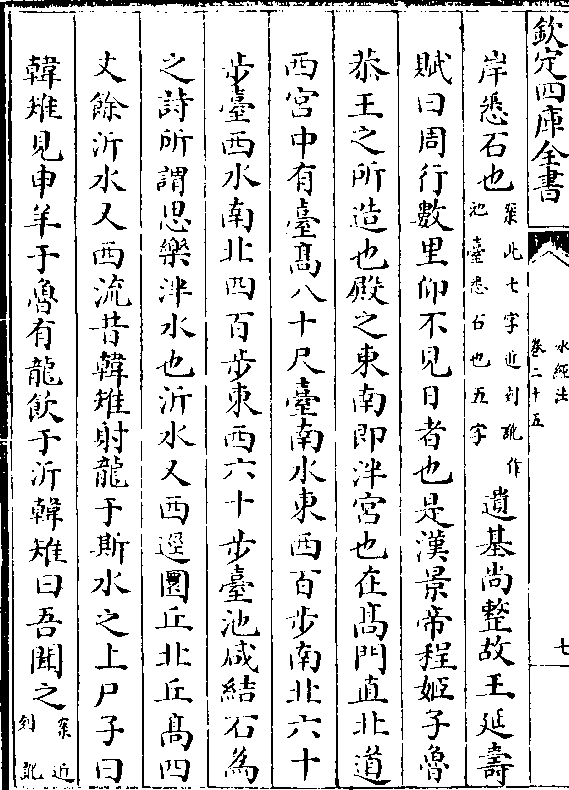 欽定四庫全書
水經注
卷二十五
七
岸悉石也案此七字近刻訛作池臺悉石也五字遺基尚整故王延壽
賦曰周行數里仰不見日者也是漢景帝程姬子魯
恭王之所造也殿之東南即泮宮也在髙門直北道
西宮中有臺髙八十尺臺南水東西百步南北六十
步臺西水南北四百步東西六十步臺池咸結石為
之詩所謂思樂泮水也沂水又西逕圜丘北丘髙四
丈餘沂水又西流昔韓雉射龍于斯水之上尸子曰
韓雉見申羊于魯有龍飲于沂韓雉曰吾聞之案近刻訛